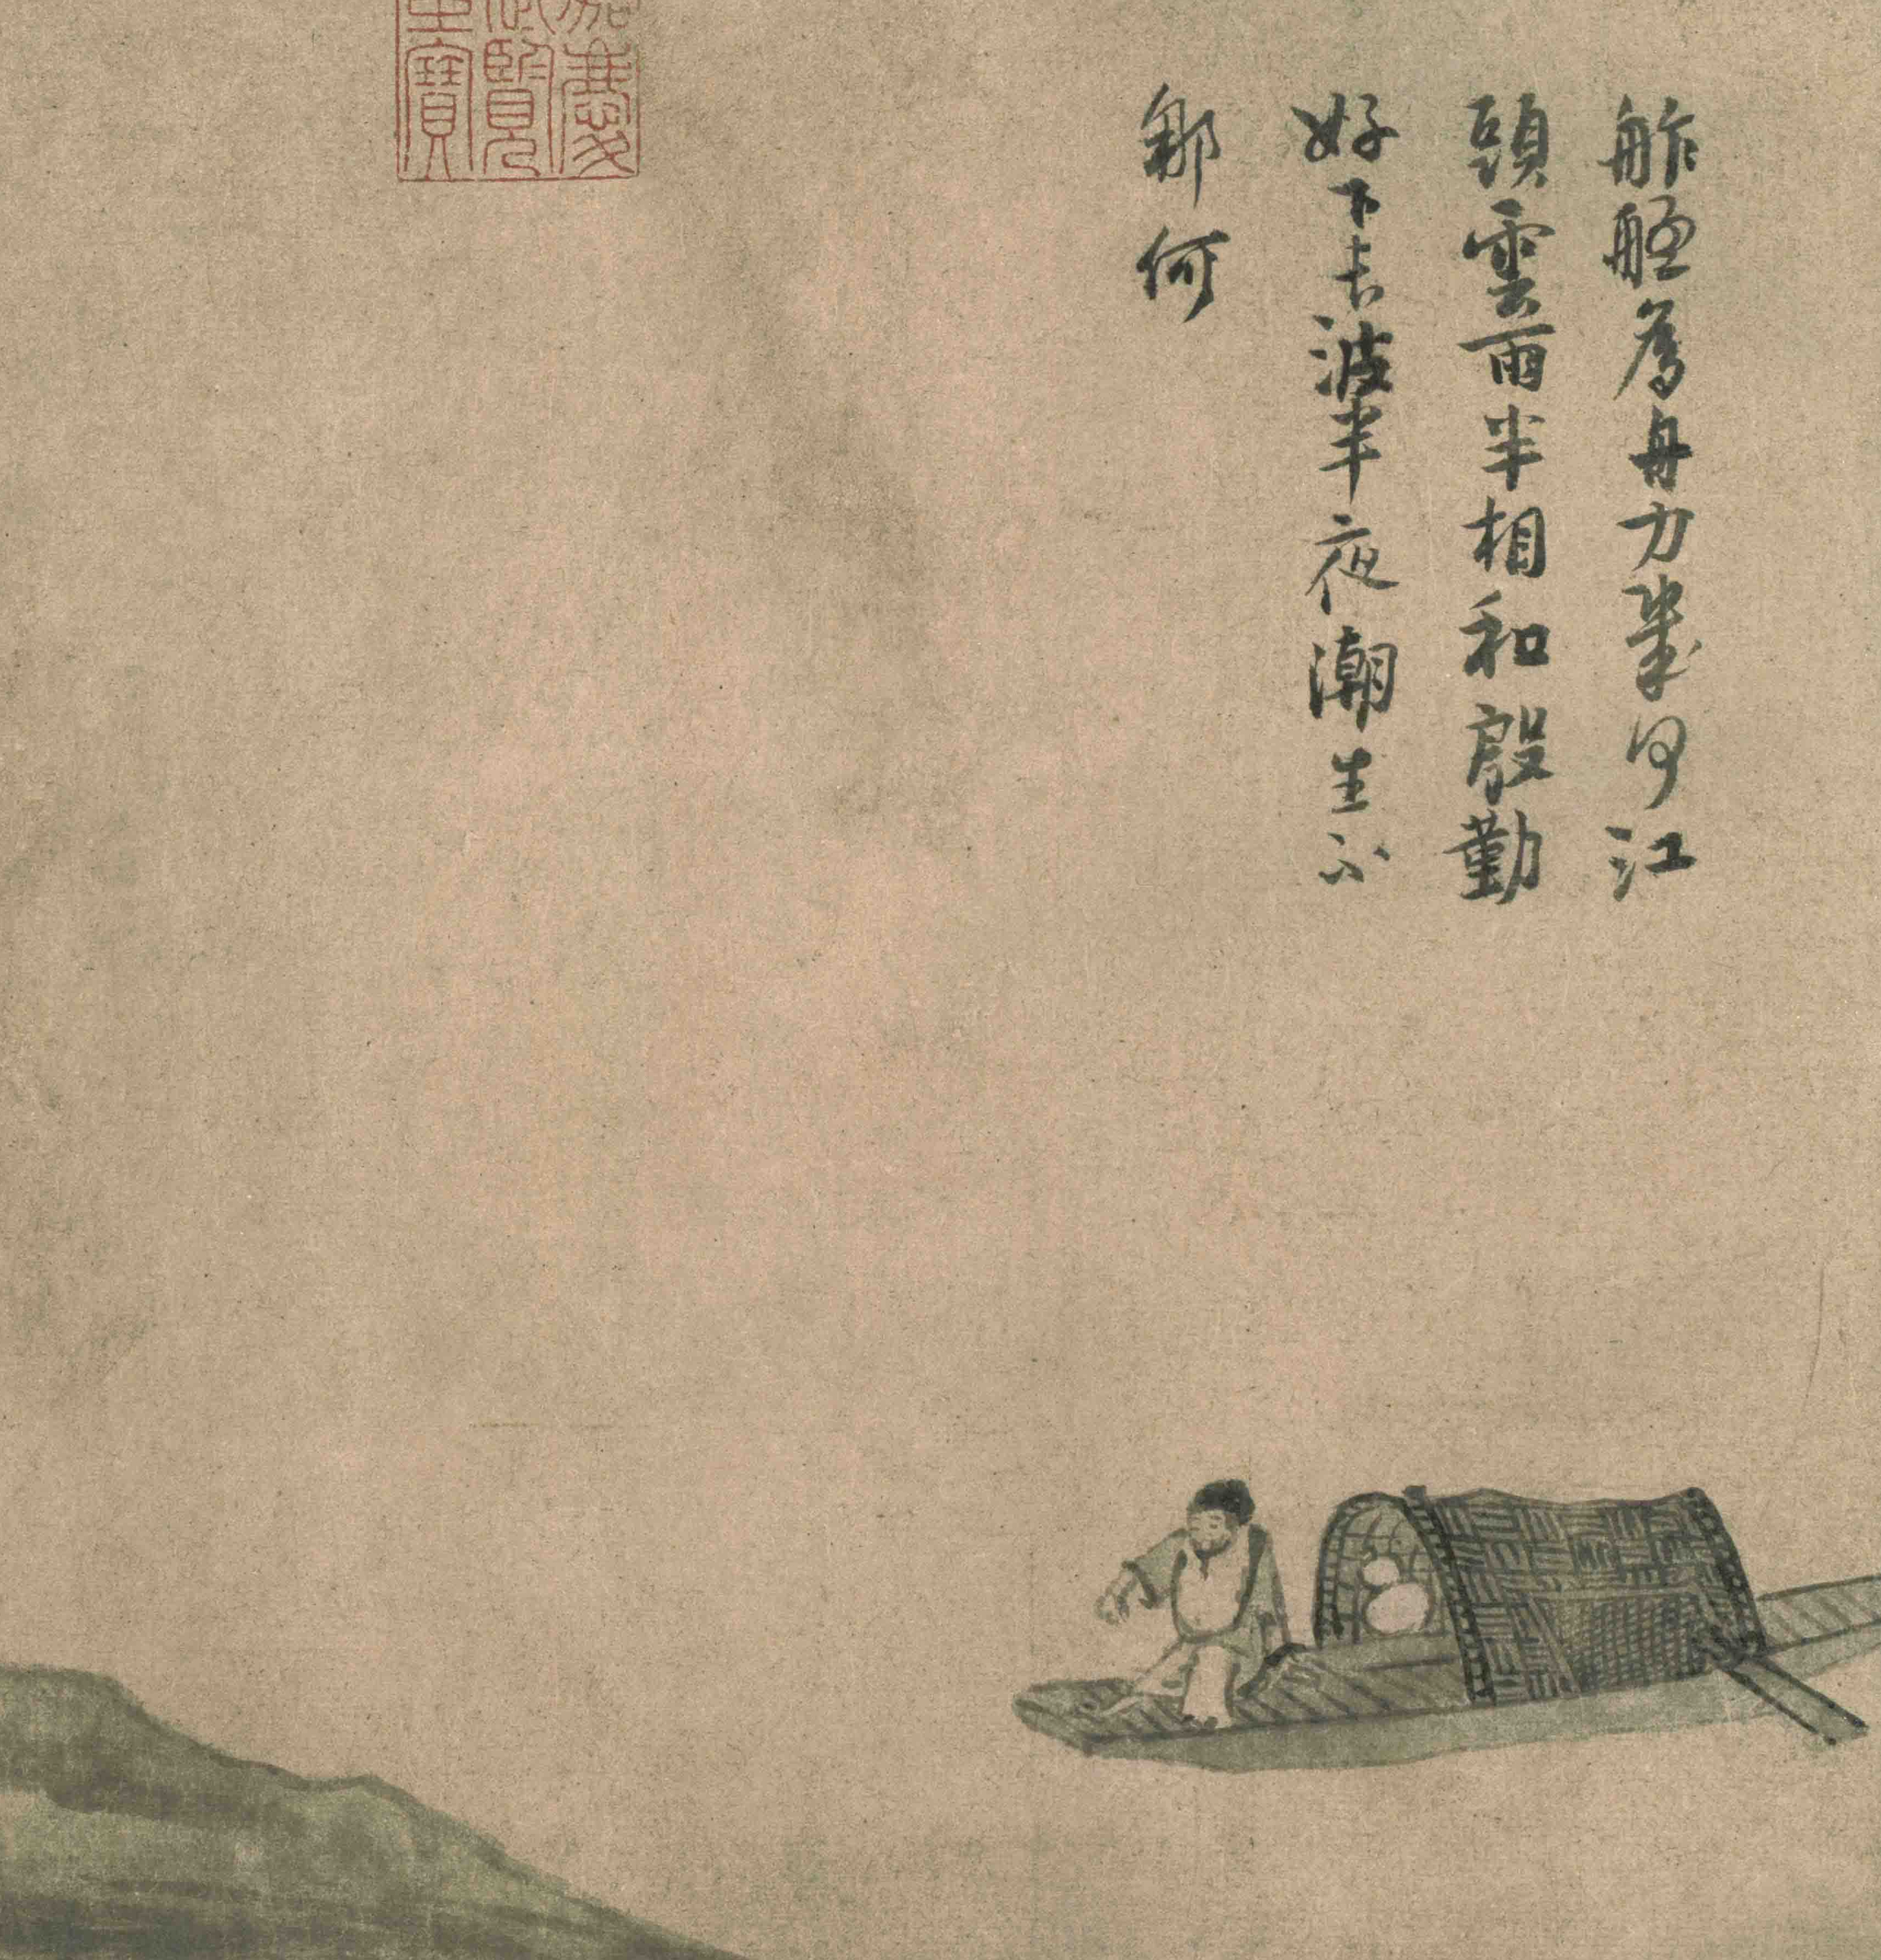 舴艋為舟力幾江
頭雲雨半相和殷勤
好下長波半夜潮生不
那何
嘉慶
御覽
之寶